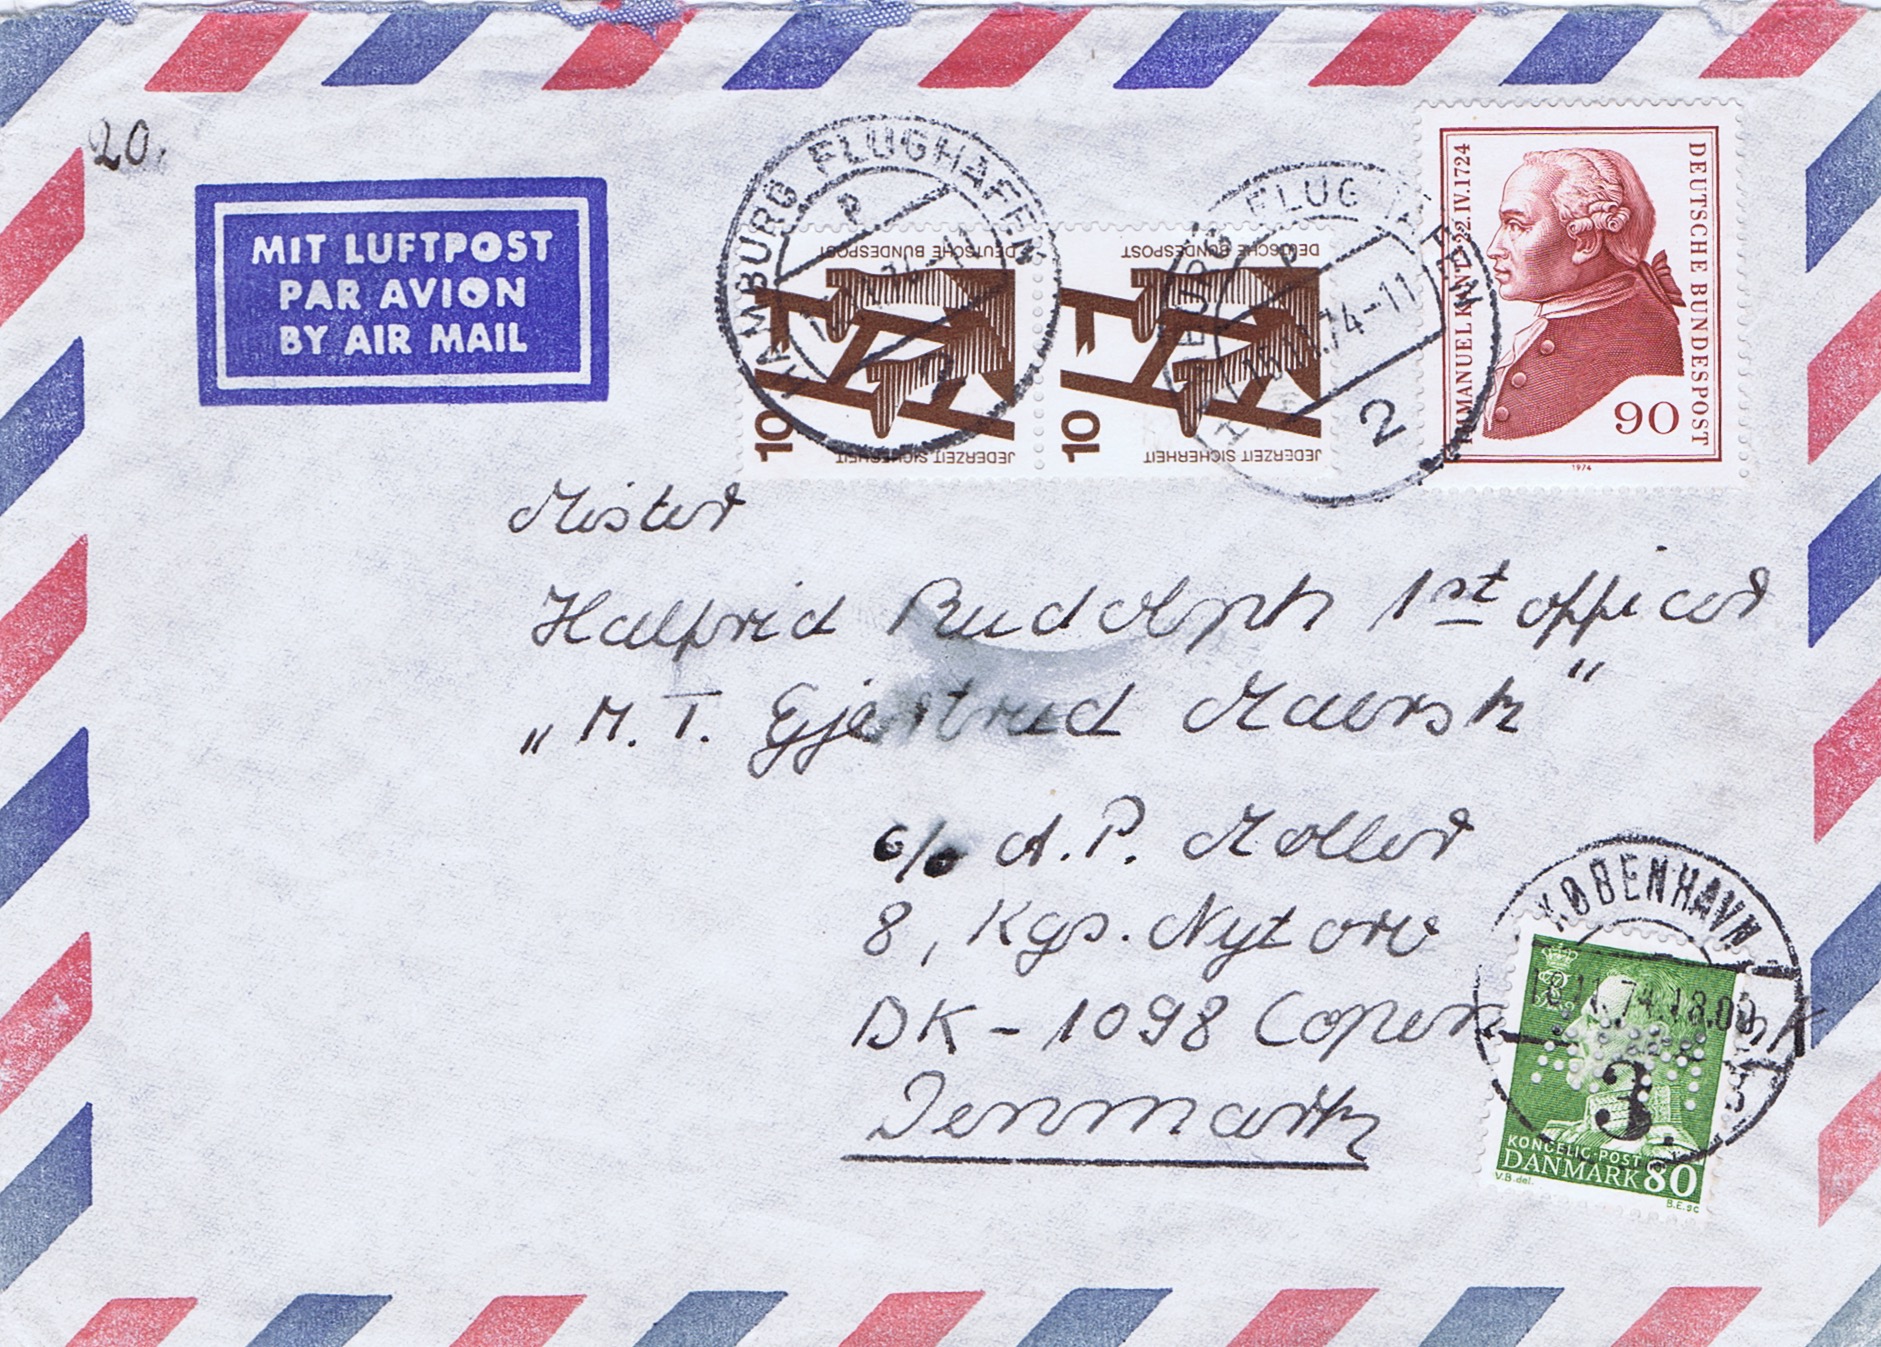 20.
MIT LUFTPOST
PAR AVION
BY AIR MAIL
HAMBURG FLUGHAFEN
2
DEUTSCHE BUNDESPOST
10
JEDERZEIT SICHERHEIT
DEUTSCHE BUNDESPOST
10
JEDERZEIT SICHERHEIT
FLUGHAFEN
74-11
2
IMMANUEL KANT 22.IV.1724
DEUTSCHE BUNDESPOST
90
1974
Mister
Halfrid Rudolph 1st officer
„M. T. Gjertrud Maersk“
c/o A. P. Moller
8, Kgs. Nytorv
DK - 1098 Copen
Denmark
KØBENHAVN K
18.00
3.
KONGELIG·POST
DANMARK 80
V.B.del.
B.E.sc